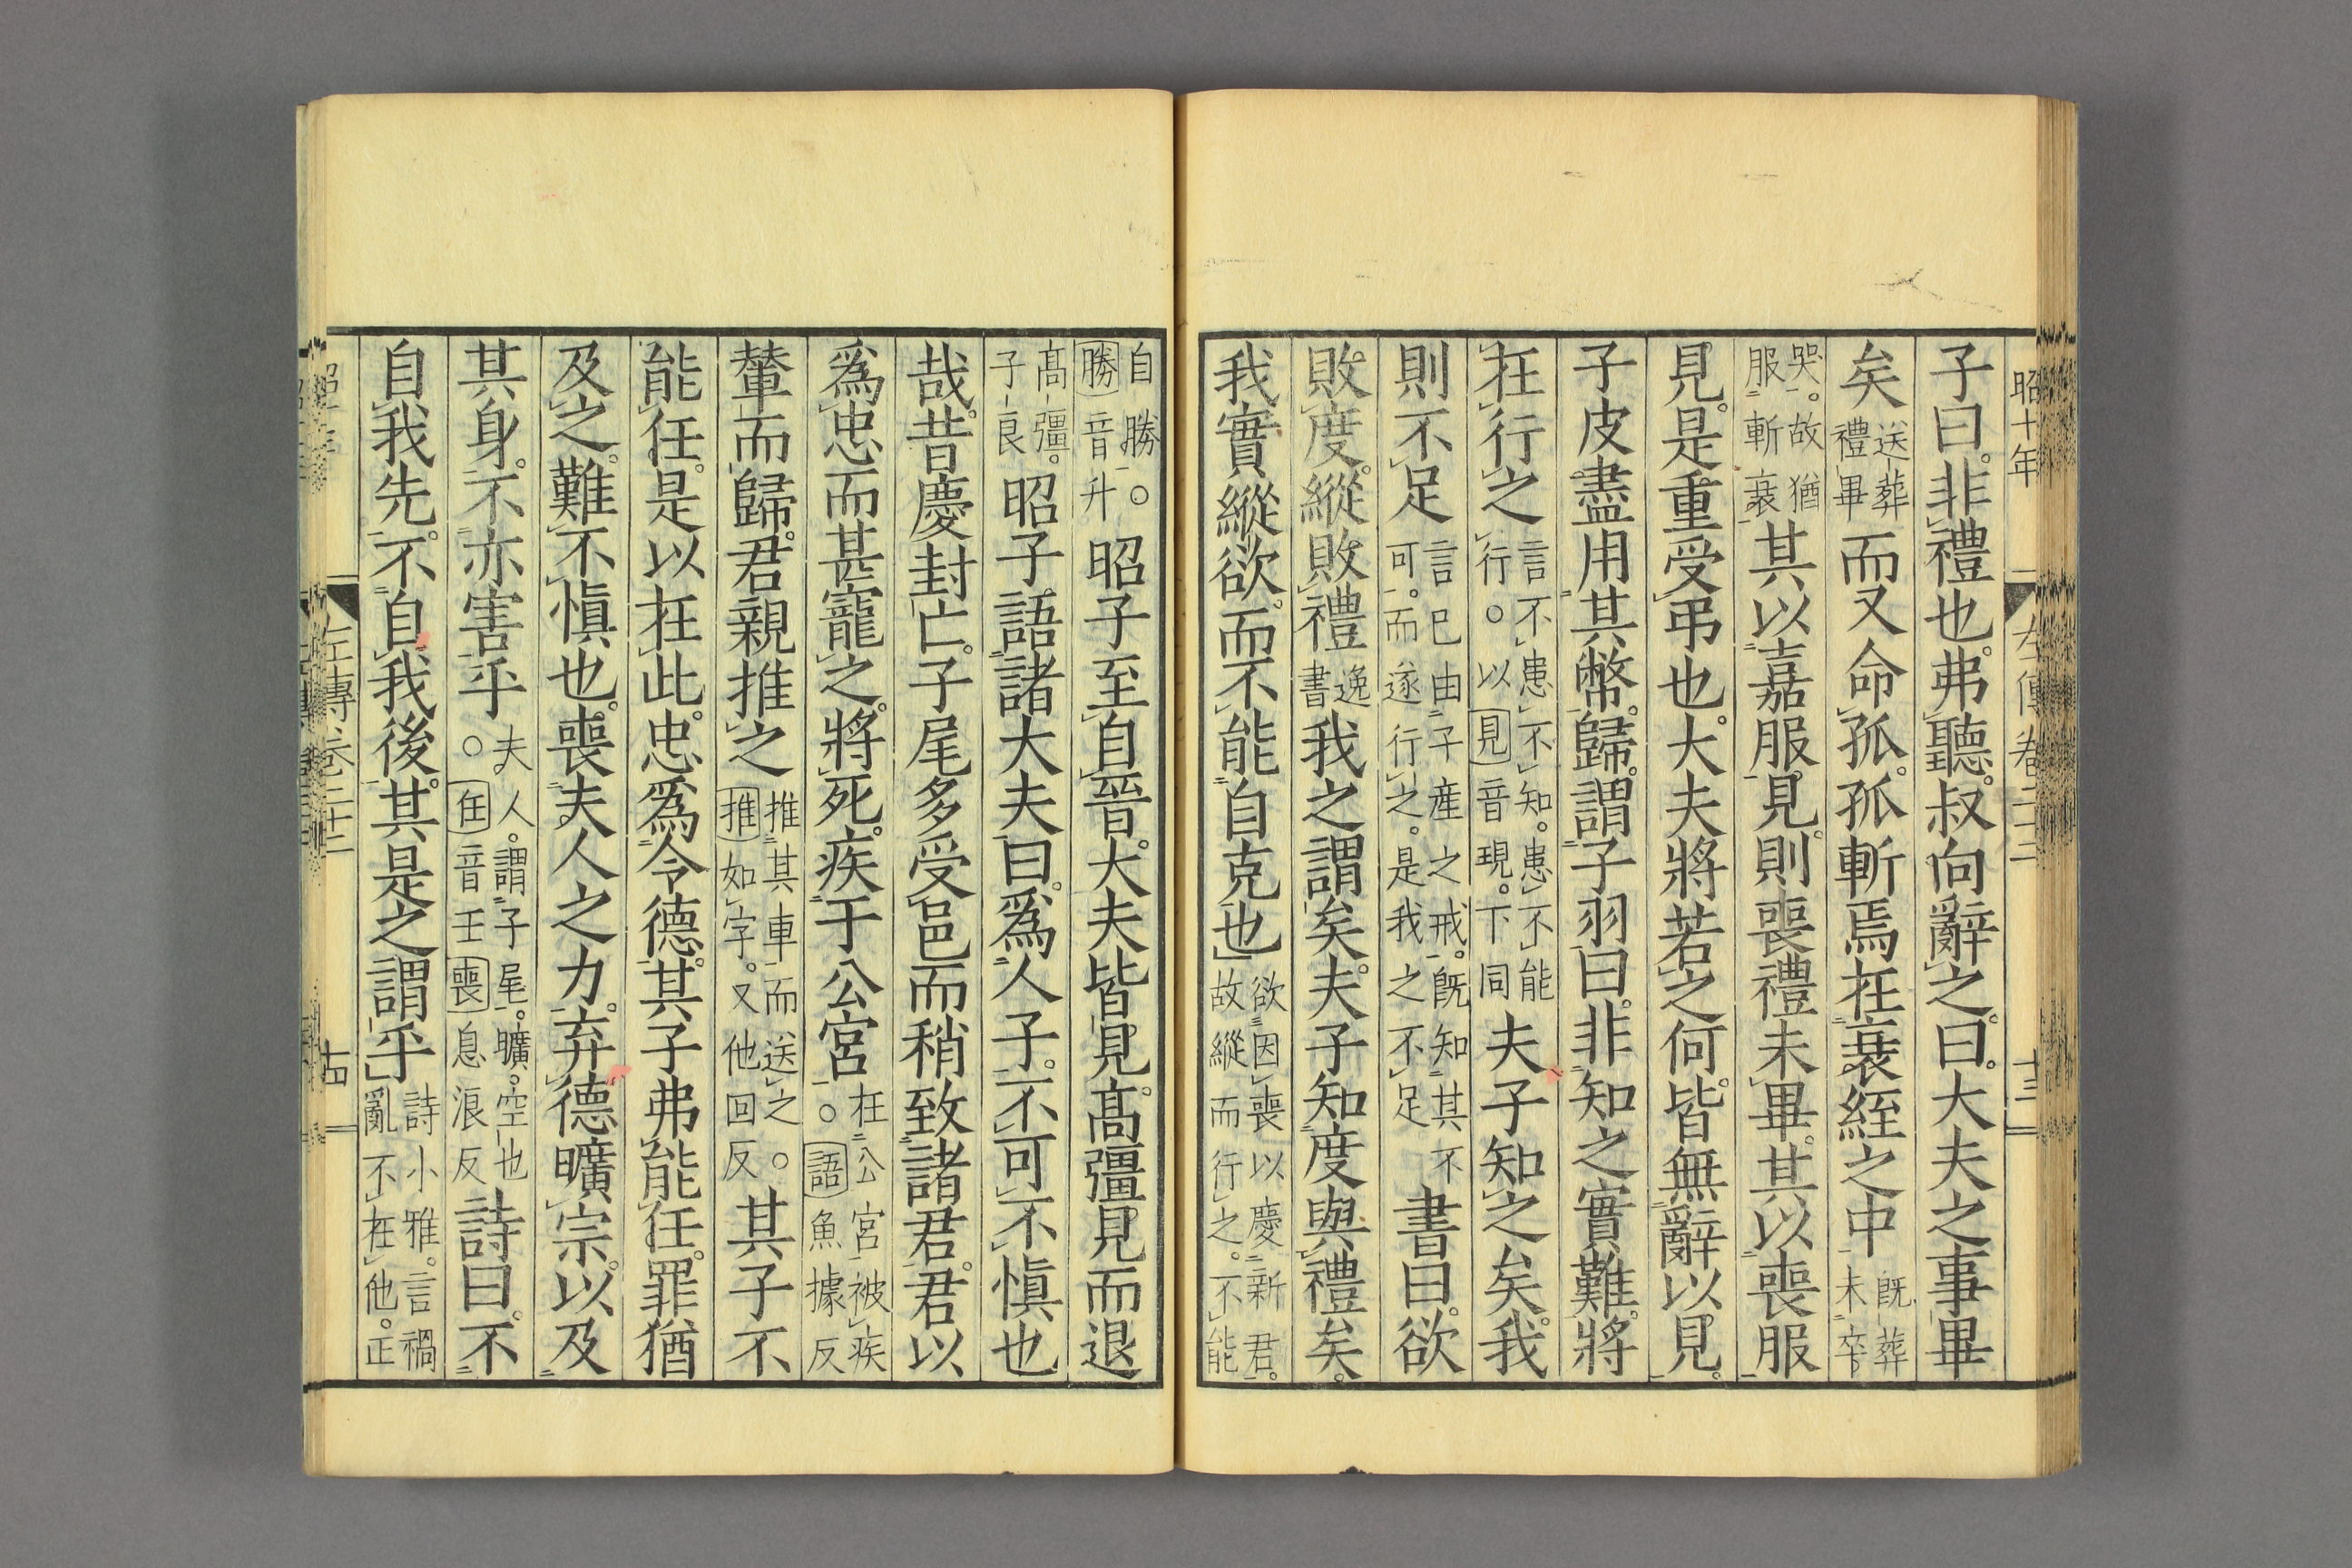 昭十年 左傳卷二十二 十三
子曰。非禮也。弗聽。叔向辭之。曰。大夫之事畢
矣送葬禮畢而又命孤。孤斬焉在衰絰之中既葬未卒
哭。故猶服斬衰其以嘉服見。則喪禮未畢。其以喪服
見。是重受弔也。大夫將若之何。皆無辭以見。
子皮盡用其幣。歸。謂子羽曰。非知之實難。將
在行之言不患不知。患不能行。○以見音現。下同夫子知之矣。我
則不足言已由子產之戒。既知其不可。而遂行之。是我之不足書曰。欲
敗度。縱敗禮逸書我之謂矣。夫子知度與禮矣。
我實縱欲。而不能自克也欲因喪以慶新君。故縱而行之。不能
自勝。○勝音升昭子至自晉。大夫皆見。髙彊見而退
髙彊。子良昭子語諸大夫曰。爲人子。不可不愼也
哉。昔慶封亡。子尾多受邑而稍致諸君。君以
爲忠而甚寵之。將死。疾于公宮在公宮被疾。○語魚據反
輦而歸。君親推之推其車而送之。○推如字。又他回反其子不
能任。是以在此。忠爲令德。其子弗能任。罪猶
及之。難不愼也。喪夫人之力。弃德曠宗。以及
其身。不亦害乎夫人。謂子尾。曠。空也。○任音壬喪息浪反詩曰。不
自我先。不自我後。其是之謂乎詩小雅。言禍亂不在他。正
左傳卷二十二 十四